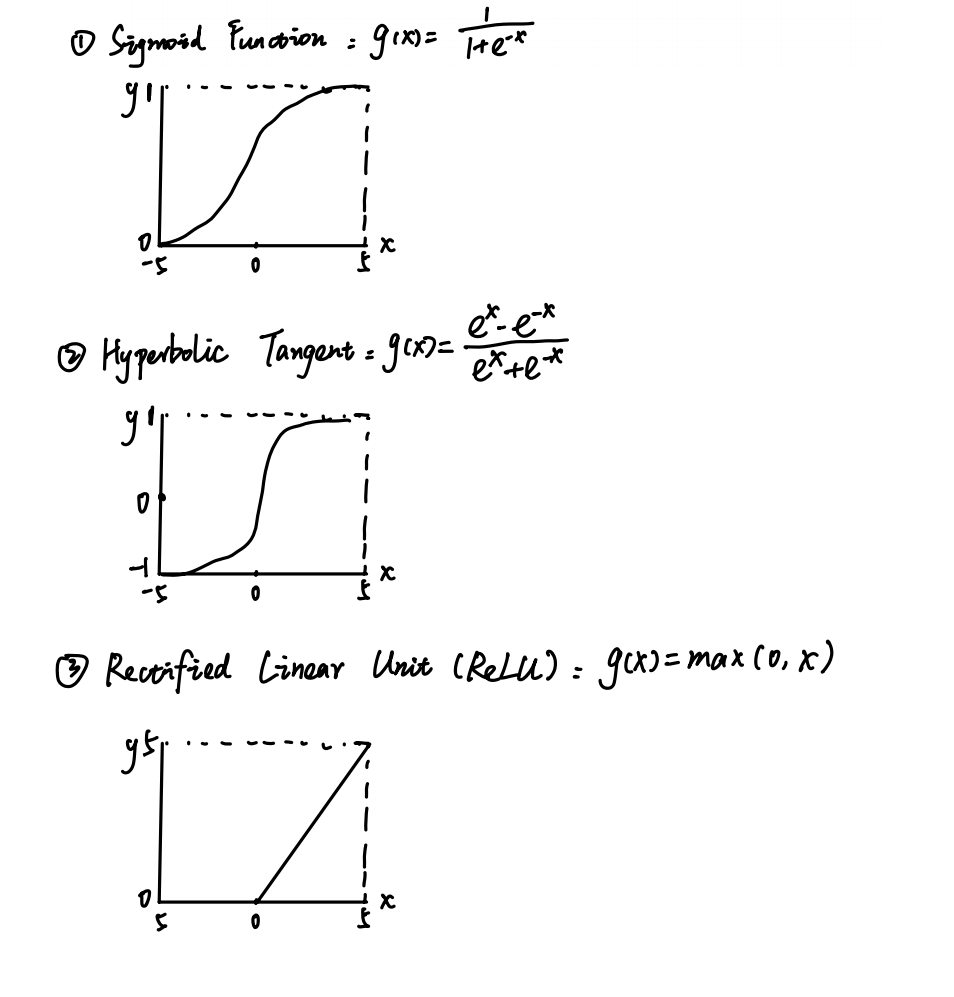 ① Sigmoid Function : g(x) = 1/(1+e^-x)
y 1
0
-5 0 5 x
② Hyperbolic Tangent : g(x) = (e^x - e^-x)/(e^x + e^-x)
y 1
0
-1
-5 0 5 x
③ Rectified Linear Unit (ReLU) : g(x) = max(0, x)
y 5
0
5 0 5 x